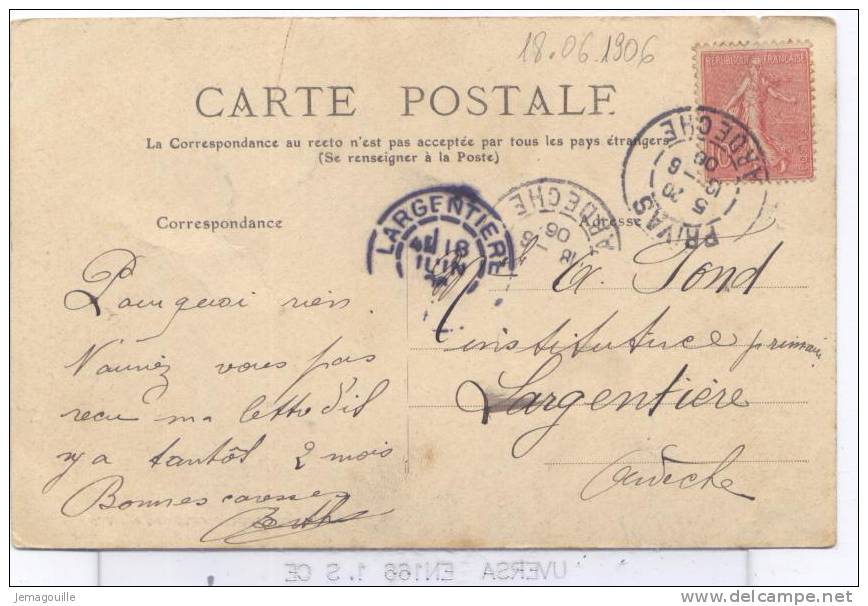 18.06.1906
REPUBLIQUE FRANÇAISE
CARTE POSTALE
La Correspondance au recto n'est pas acceptée par tous les pays étrangers
(Se renseigner à la Poste)
Correspondance
Adresse
PRIVAS ARDECHE
5 20
15 - 6
06
LARGENTIERE
18
JUIN
ARDECHE
18 - 6
06
Pourquoi rien
N'auriez vous pas
recu ma lettre d'il
y a tantôt 2 mois
Bonnes caresses
A. Pond
institutrice primaire
Largentière
Ardèche
UVERSA EN166 1.S CE
Jemagouille
http://www.delcampe.net